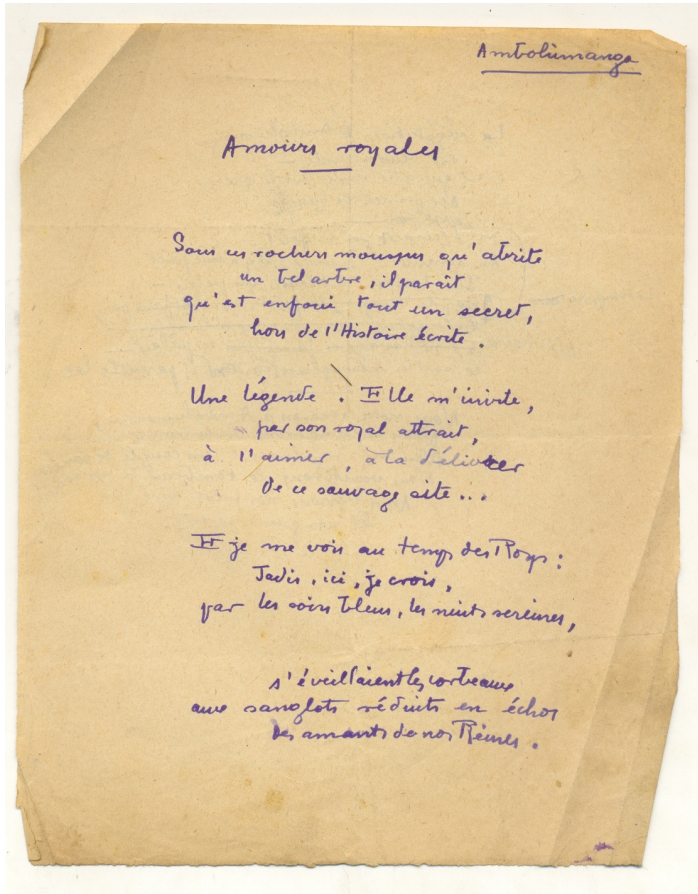 Ambohimanga
Amours royales
Sous ces rochers moussus qu'abrite
un bel arbre, il paraît
qu'est enfoui tout un secret,
hors de l'Histoire écrite.
Une légende. Elle m'invite,
par son royal attrait,
à l'aimer, à la délivrer
de ce sauvage site...
Et je me vois au temps des Roys :
Jadis, ici, je crois,
par les soirs bleus, les nuits sereines,
s'éveillaient les corbeaux
aux sanglots réduits en échos
des amants de nos Reines.